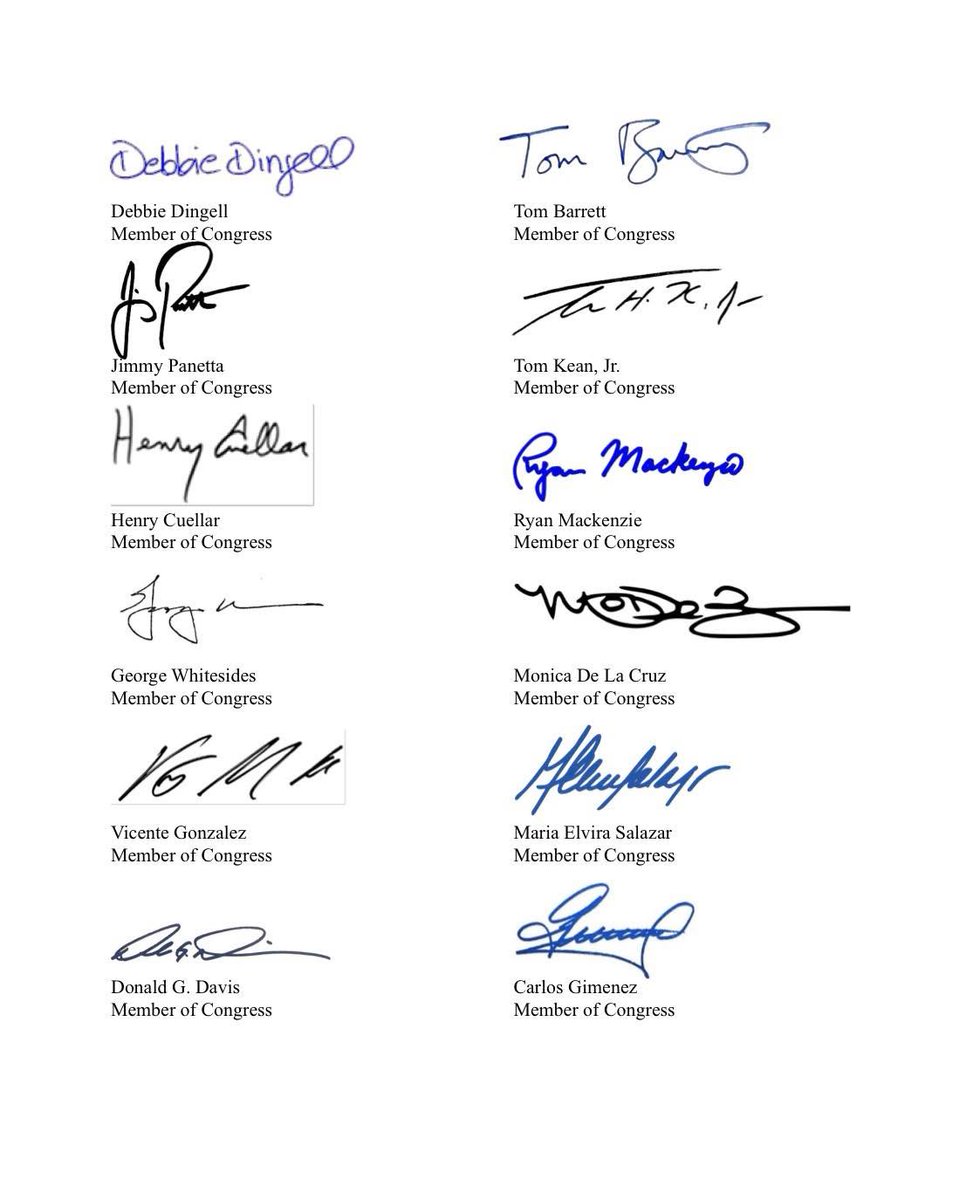 Debbie Dingell
Tom
Debbie Dingell
Member of Congress
Tom Barrett
Member of Congress
Jimmy Panetta
Member of Congress
Tom Kean, Jr.
Member of Congress
Henry Cuellar
Ryan Mackenzie
Henry Cuellar
Member of Congress
Ryan Mackenzie
Member of Congress
George Whitesides
Member of Congress
Monica De La Cruz
Member of Congress
Vicente Gonzalez
Member of Congress
Maria Elvira Salazar
Member of Congress
Donald G. Davis
Member of Congress
Carlos Gimenez
Member of Congress